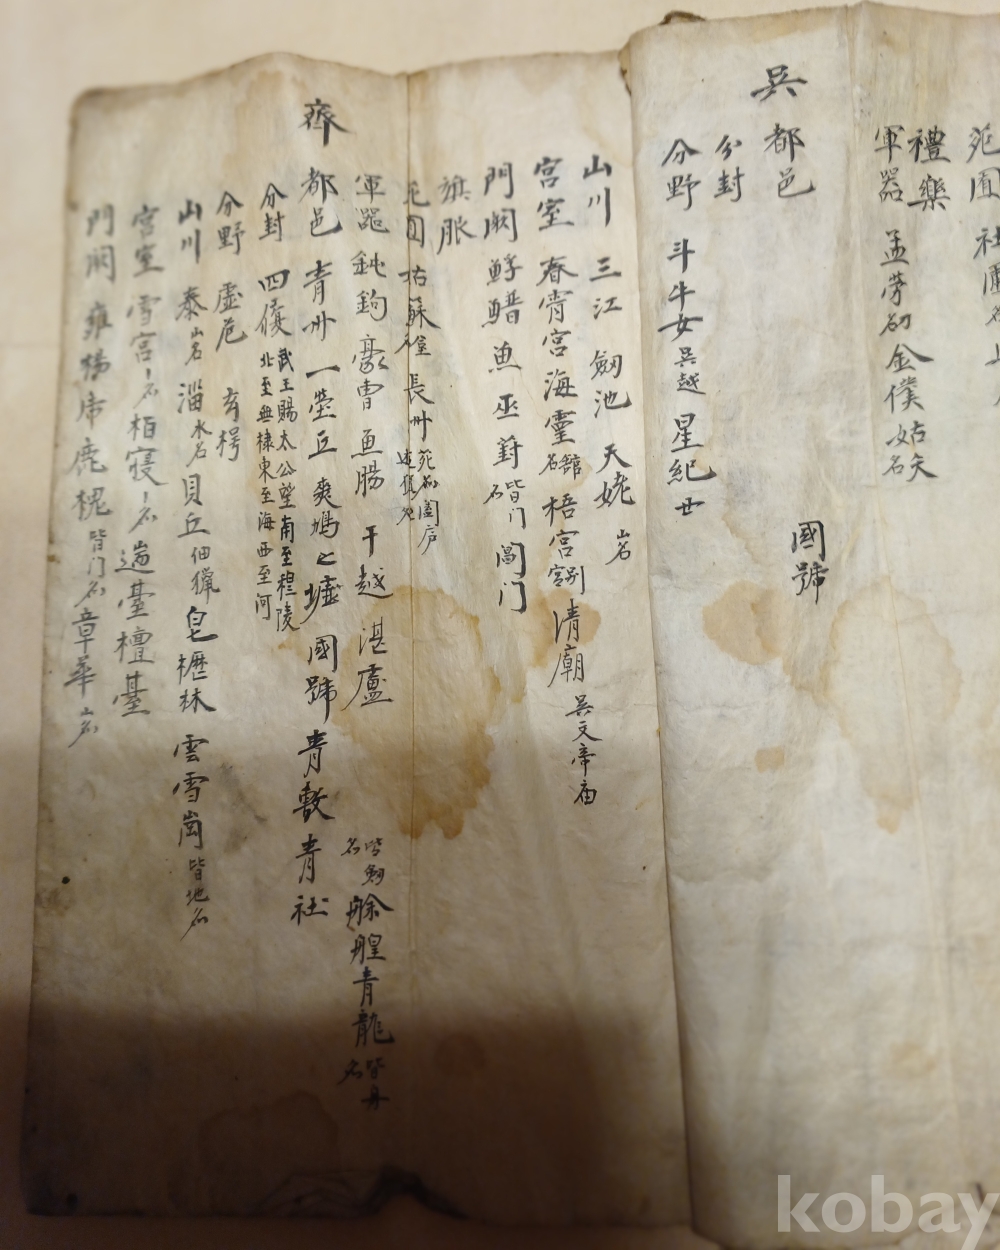 苑囿 社圃名
禮樂
軍器 孟勞 金僕姑矢名
吳
都邑 國號
分封
分野 斗牛女吳越星紀
山川 三江 劒池 天姥山名
宮室 春宵宮海靈館名 梧宮別宮 清廟吳文帝庙
門闕 鱘鱛魚 巫葑皆门名 閶门
旗
苑囿 姑蘇臺名 長卅苑名闔庐
軍器 鈍鉤 豪曹 魚腸 干越 湛盧皆劒名 艅艎青龍皆舟名
齊
都邑 青卅 營丘 爽鳩之墟 國號 青社
分封 四 武王賜太公望南至穆陵北至無棣東至海西至河
分野 虛危 玄枵
山川 泰山名 淄水名 貝丘佃獵 皂櫪林 雲雪崗皆地名
宮室 雪宮名 栢寑名 遄臺檀臺
門闕 雍 鹿 皆门名 章華名
kobay